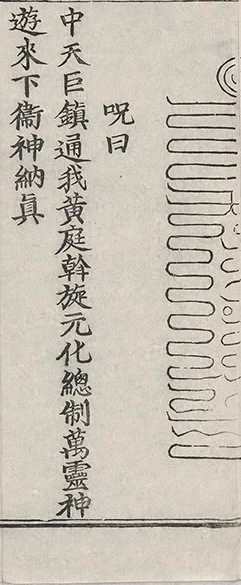 呪曰
中天巨鎮通我黃庭斡旋元化總制萬靈神
遊來下衞神納眞